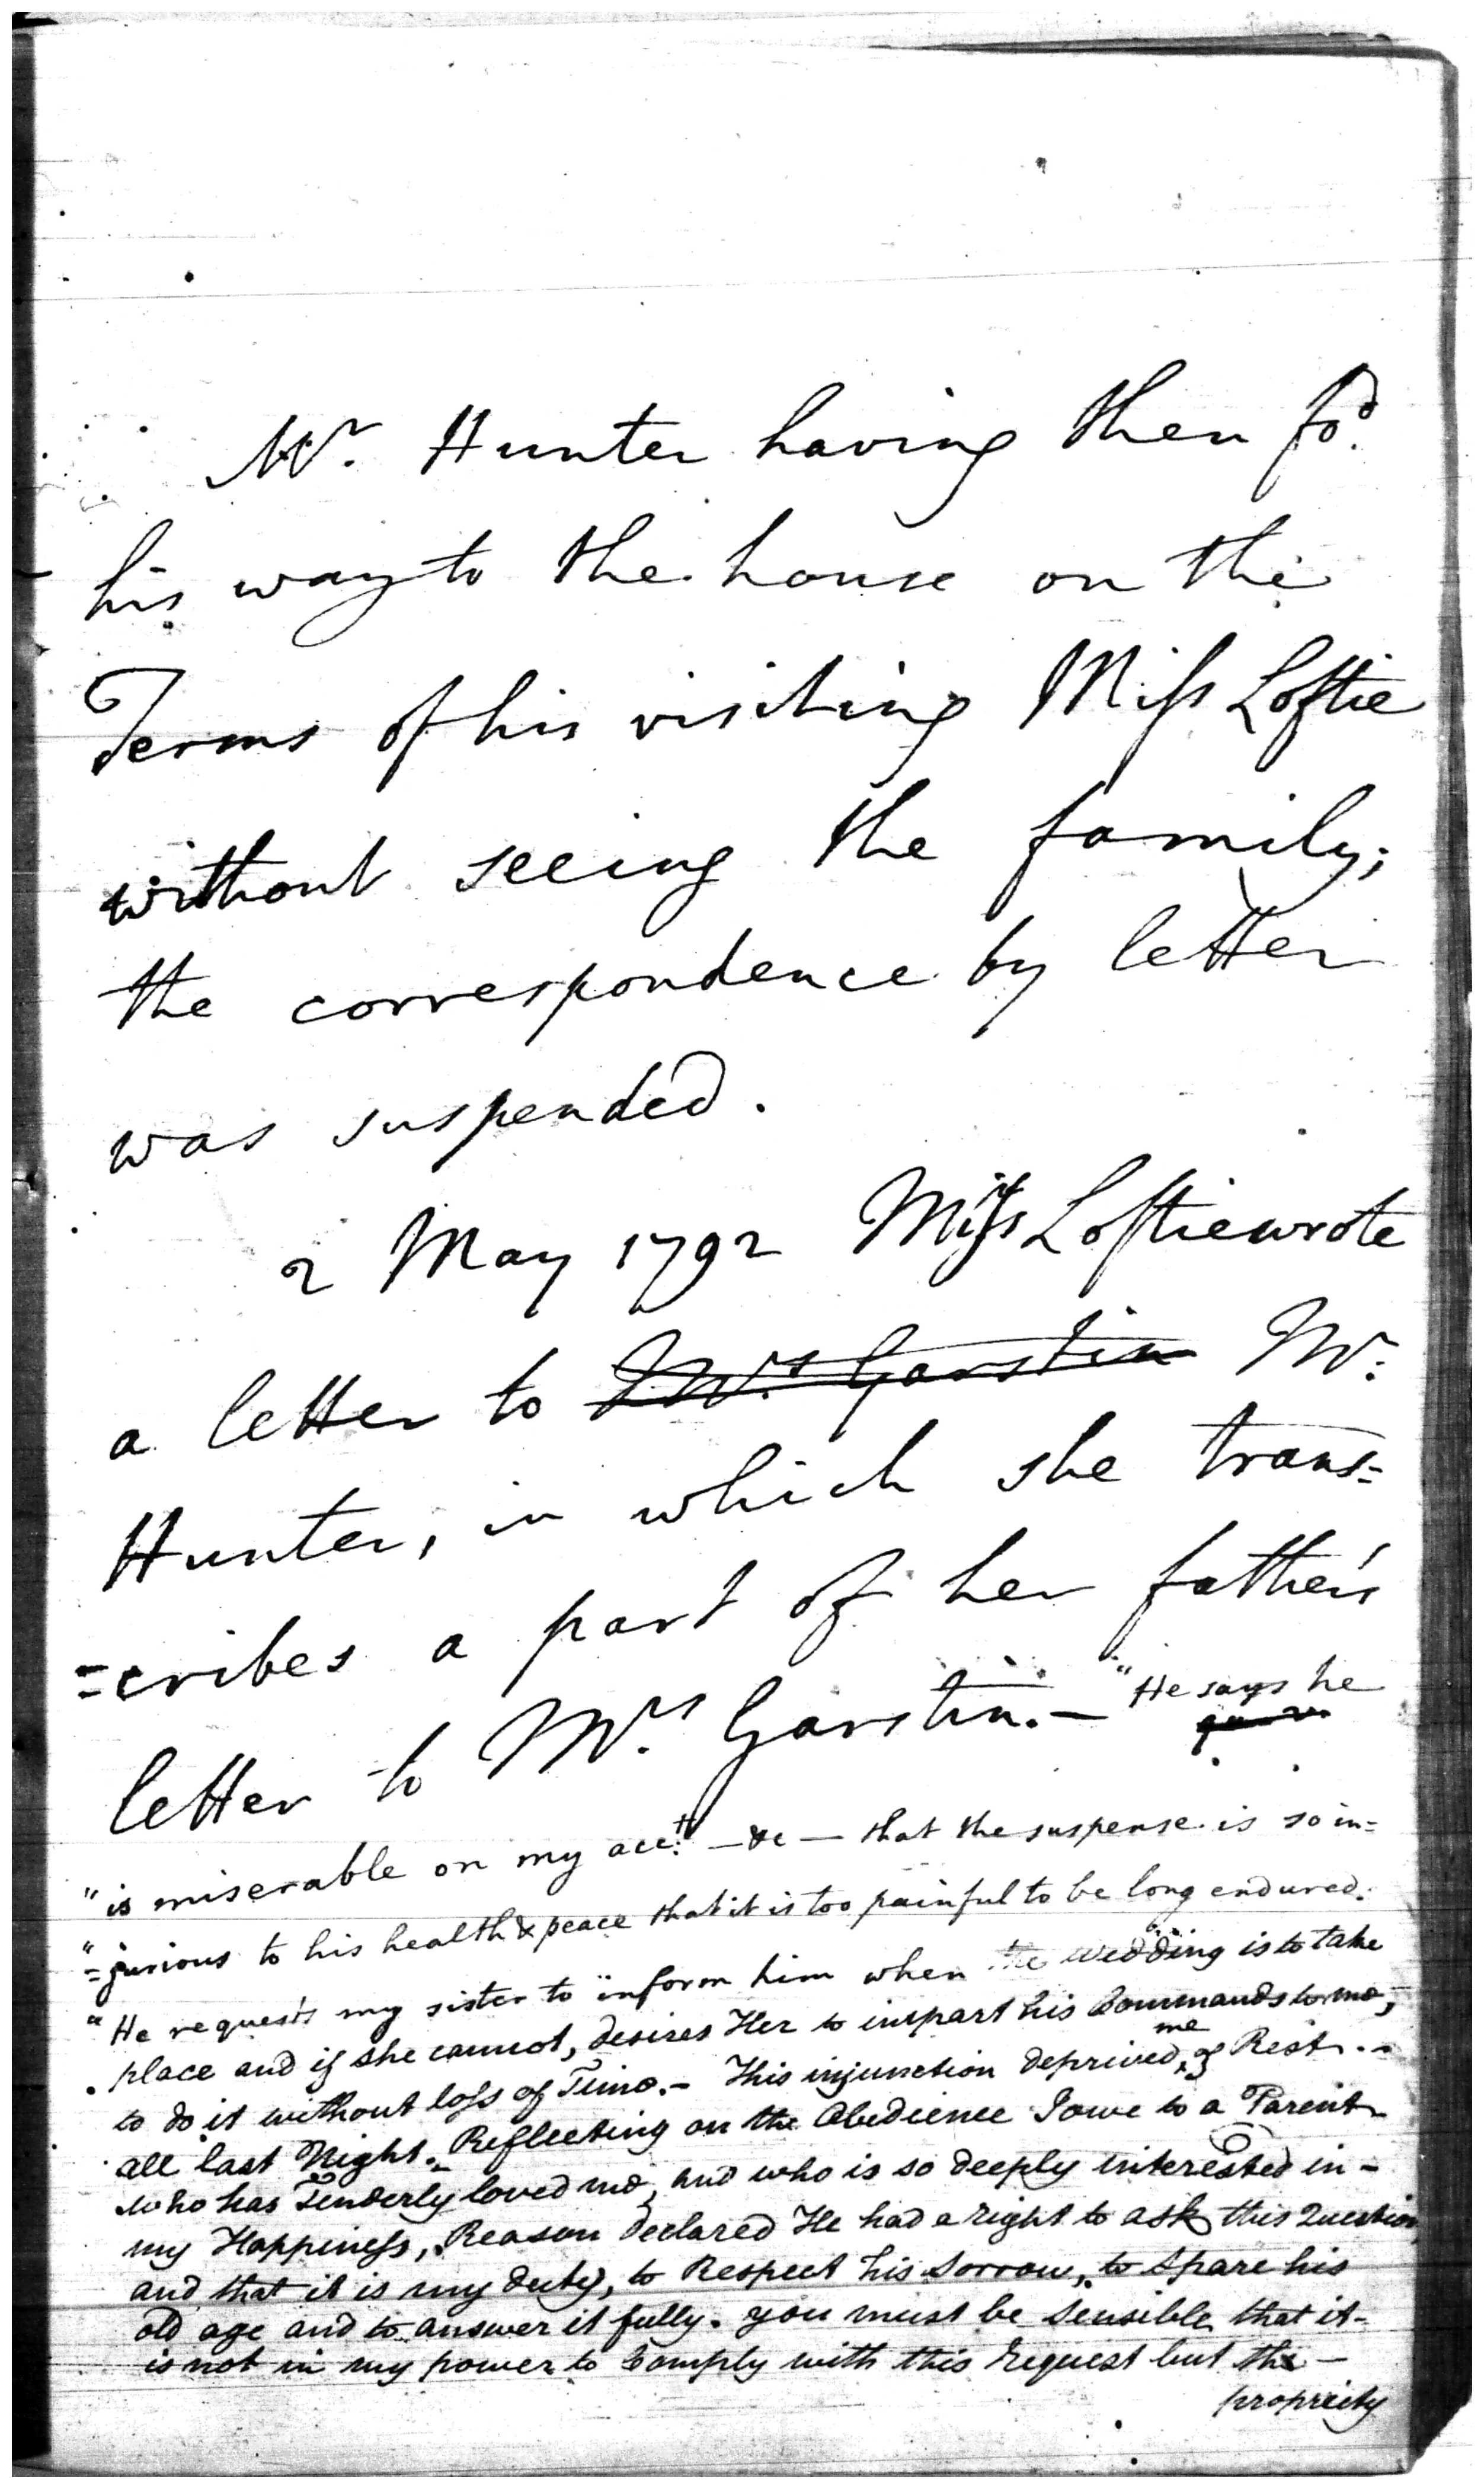 Mr. Hunter having then fo.d
his way to the house on the
Terms of his visiting Miss Loftie
without seeing the family;
the correspondence by letter
was suspended.
2 May 1792 Miss Loftie wrote
a letter to Mrs Garstin Mr.
Hunter, in which she trans=
=cribes a part of her father's
letter to Mrs Garstin.— "He says he
"is miserable on my acct. — &c — that the suspense is so in=
"=jurious to his health & peace that it is too painful to be long endured.
"He requests my sister to inform him when the wedding is to take
place and if she cannot, desires Her to impart his Commands to me,
to do it without loss of Time.- This injunction deprived me of Rest.-
all last Night. Reflecting on the Obedience I owe to a Parent
who has Tenderly loved me, and who is so deeply interested in -
my Happiness, Reason declared He had a right to ask this Question
and that it is my duty, to Respect his Sorrow, to Spare his
old age and to answer it fully. you must be Sensible that it-
is not in my power to Comply with this request but the -
propriety